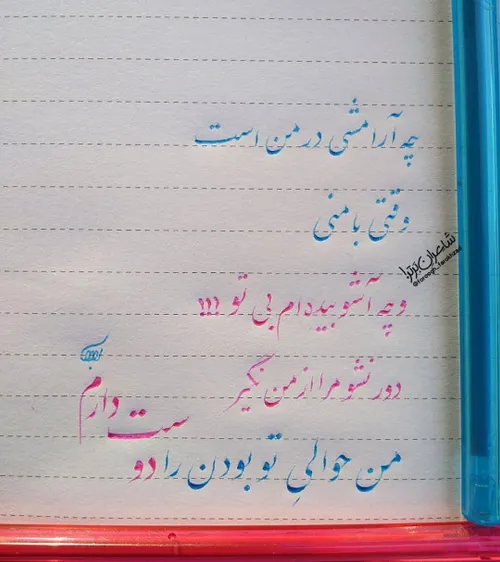 چه آرامشی در من است
وقتی با منی
و چه آشوبیده ام بی تو !!!
دور نشو مرا از من نگیر
من حوالیِ تو بودن را دوست دارم
شاعران برتر
@forough_farokhzad